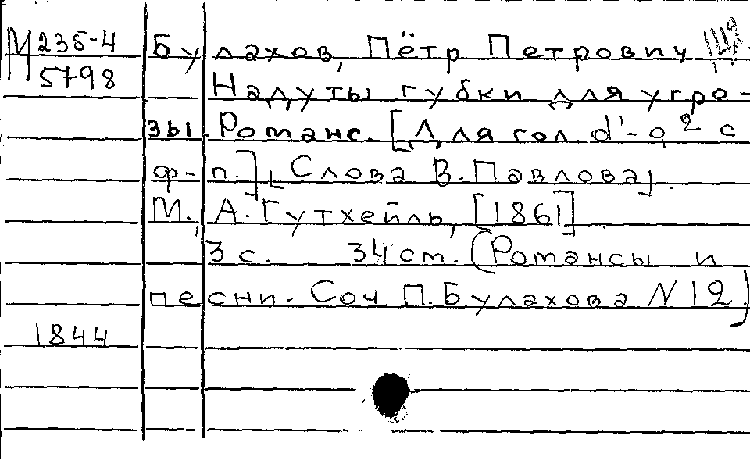 М 235-4 Булахов, Пётр Петрович
5798 Надуты губки для угро-
зы. Романс. [Для гол d¹-g² с
ф-п.] [Слова В. Павлова].
М., А. Гутхейль, [1861]
3 с. 34 см. (Романсы и
песни. Соч П. Булахова N 12)
1844